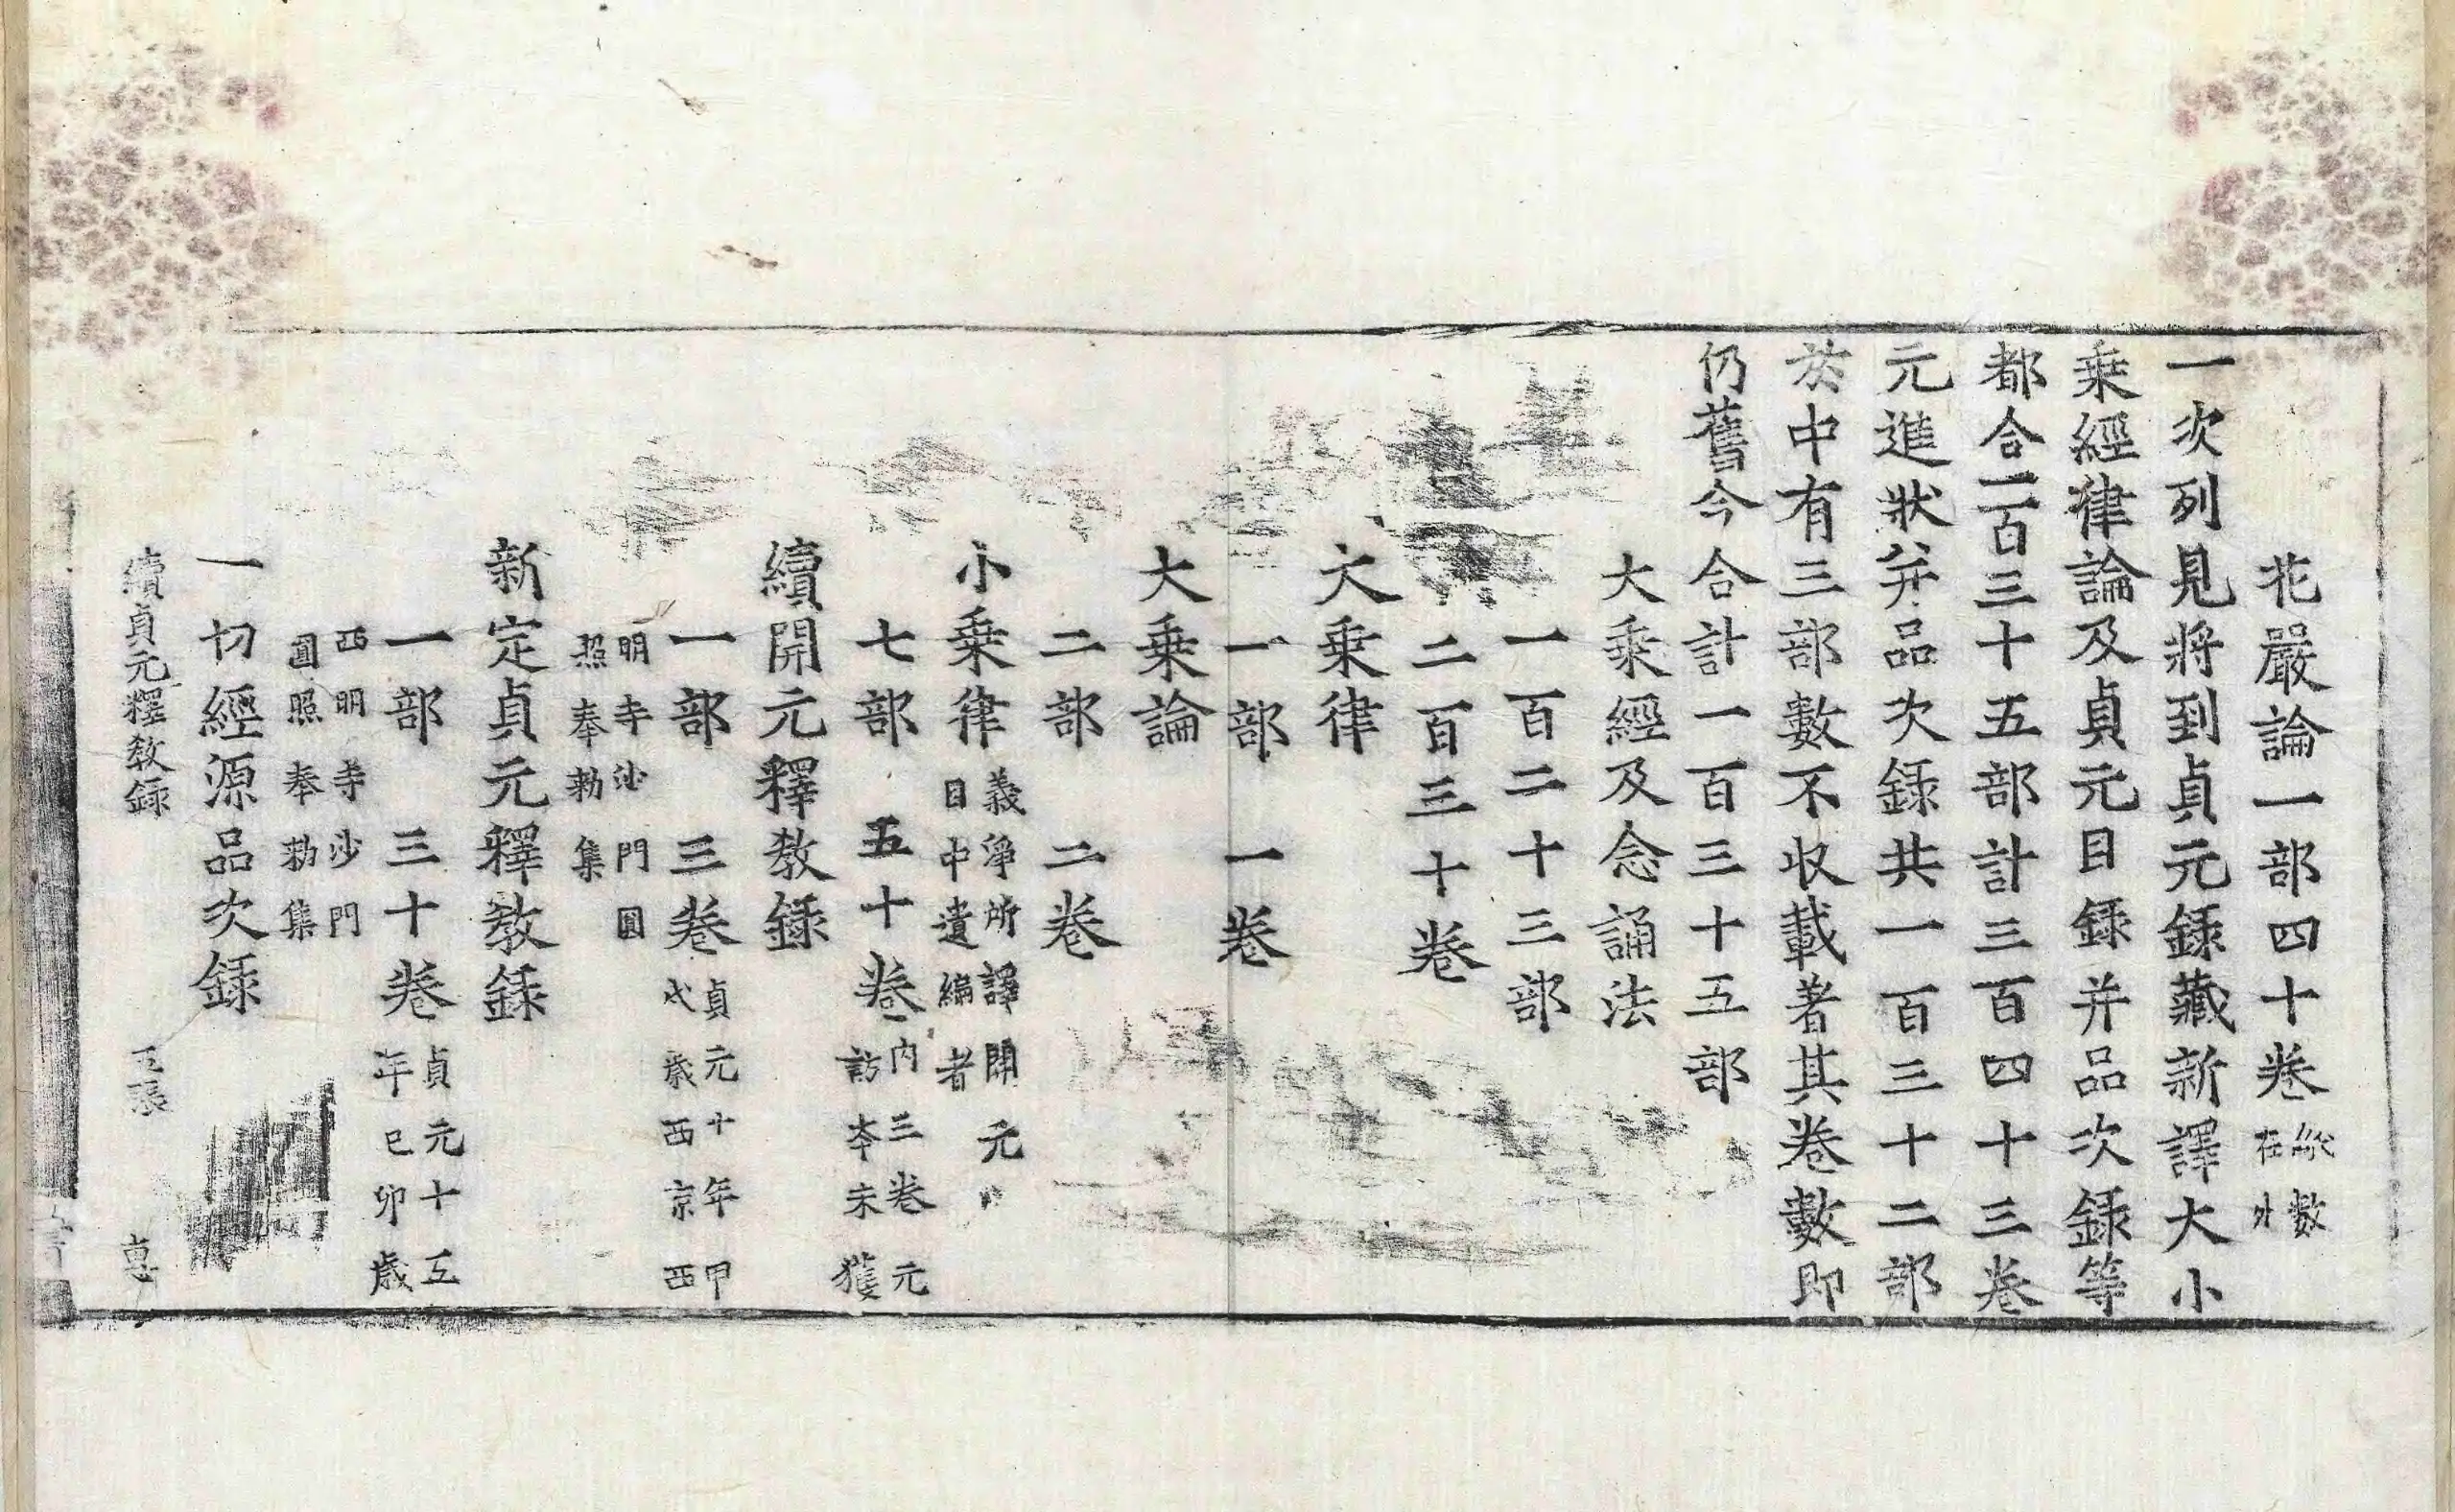 花嚴論一部四十卷縱數在外
一次列見將到貞元錄藏新譯大小
乗經律論及貞元目錄并品次錄等
都合二百三十五部計三百四十三卷
元進狀并品次錄共一百三十二部
於中有三部數不收載著其卷數即
仍舊今合計一百三十五部
大乘經及念誦法
一百二十三部
二百三十卷
大乗律
一部　一卷
大乗論
二部　二卷
小乗律義淨所譯開元目中遺編者
七部　五十卷内三卷元訪本未獲
續開元釋教錄
一部　三卷貞元十年甲戌歲西京西
明寺沙門圓照奉勅集
新定貞元釋教錄
一部　三十卷貞元十五年己卯歳
西明寺沙門圓照奉勅集
一切經源品次錄
續貞元釋教録　五張